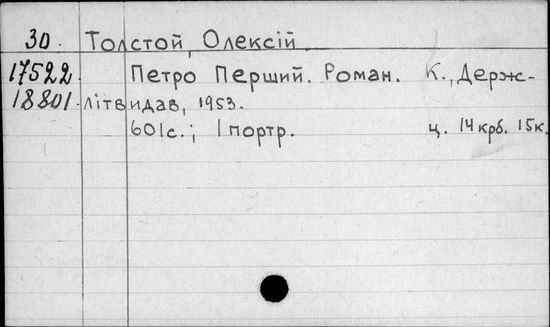 30. Толстой, Олексій
17522 Петро Перший. Роман. К., Держ-
18801 літвидав, 1953.
601с.; 1 портр. ц. 14 крб. 15к.